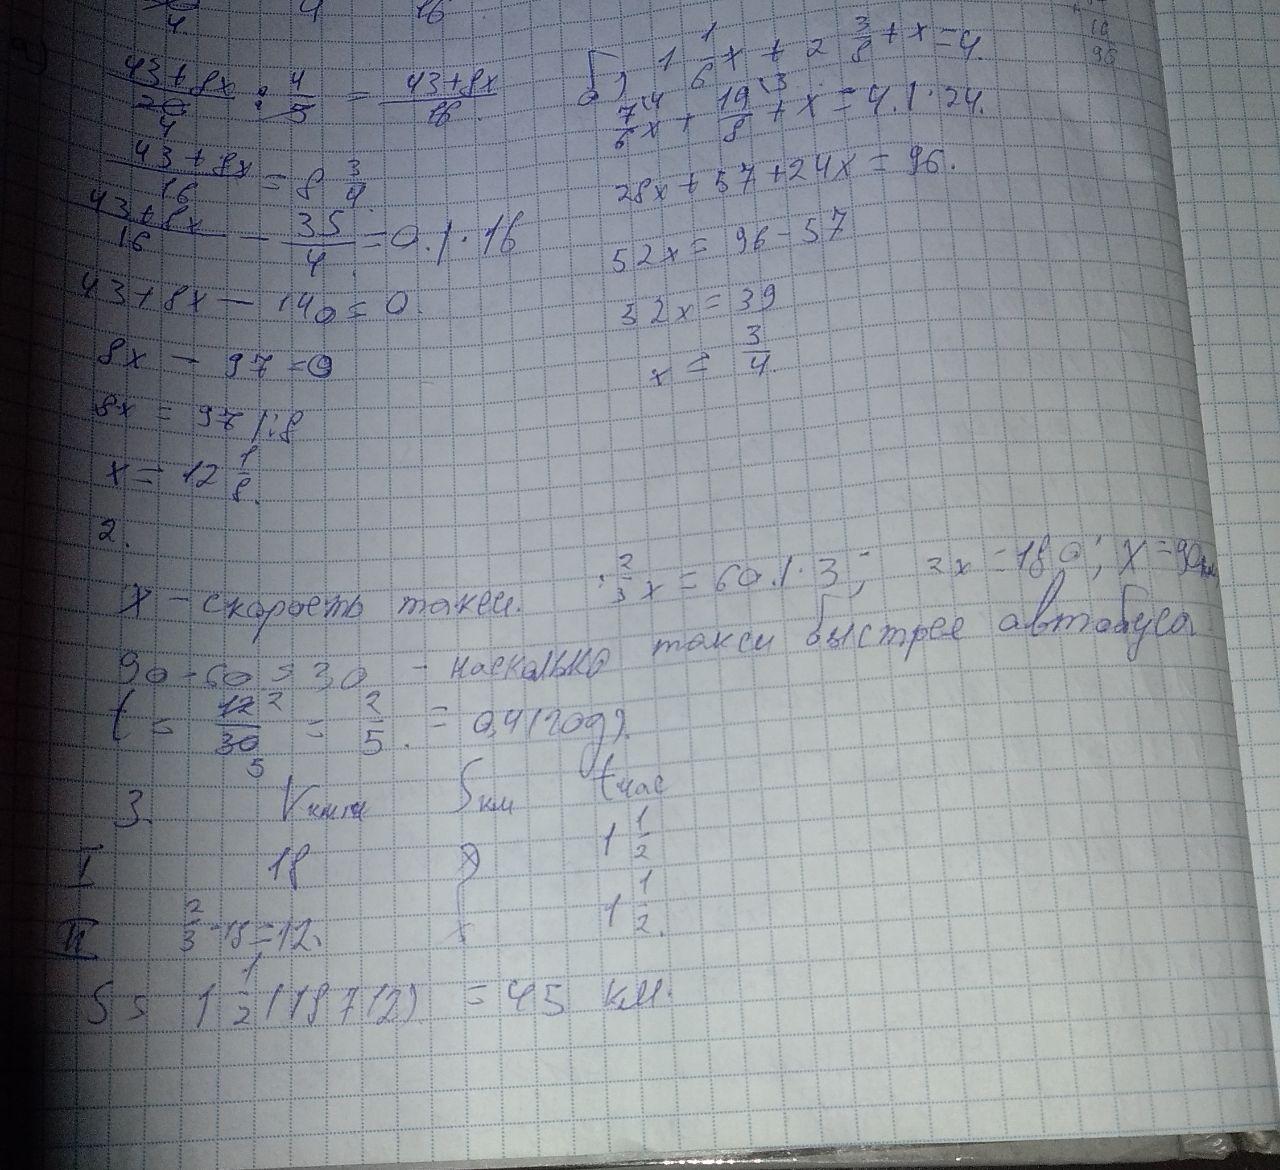 4. 4 16
а)
43+8x/20 4 : 4/5 = 43+8x/16.
43+8x/16 = 8 3/4.
43+8x/16 - 35/4 = 0.|·16
43+8x - 140 = 0.
8x - 97 = 0
8x = 97 |:8
x = 12 1/8.
б) 1 1/6 x + 2 3/8 + x = 4.
7/6 x + 19/8 + x = 4.|·24.
28x + 57 + 24x = 96.
52x = 96 - 57
52x = 39
x = 3/4.
16
96
2.
x - скорость такси. 2/3 x = 60.|·3; 2x = 180; x = 90км
90 - 60 = 30 - насколько такси быстрее автобуса
t = 12 2/30 5 = 2/5. = 0,4(год).
3. V км/ч S км t час
I 18 x 1 1/2
II 2/3·18=12. x 1 1/2.
S = 1 1/2 (18+12) = 45 км.